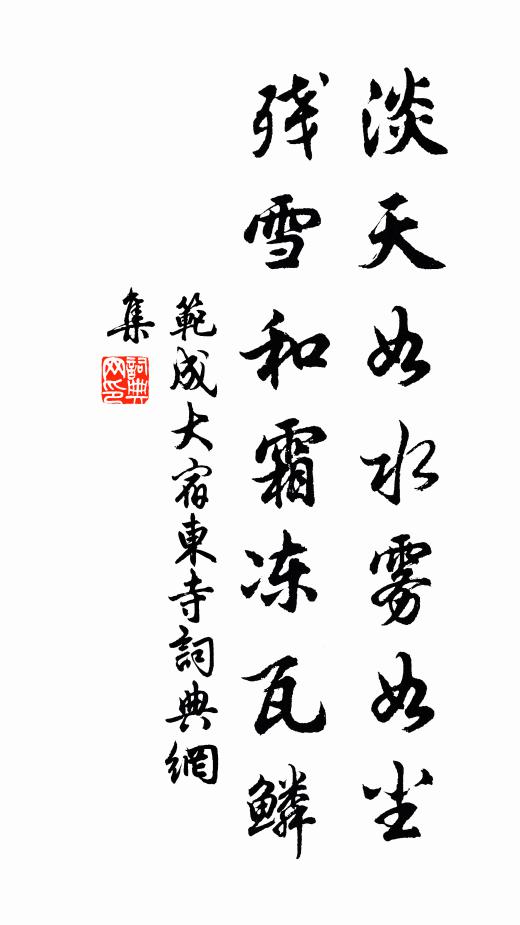 淡天如水雾如尘
残雪和霜冻瓦鳞
範成大宿東寺詞典網
集
詞典网印